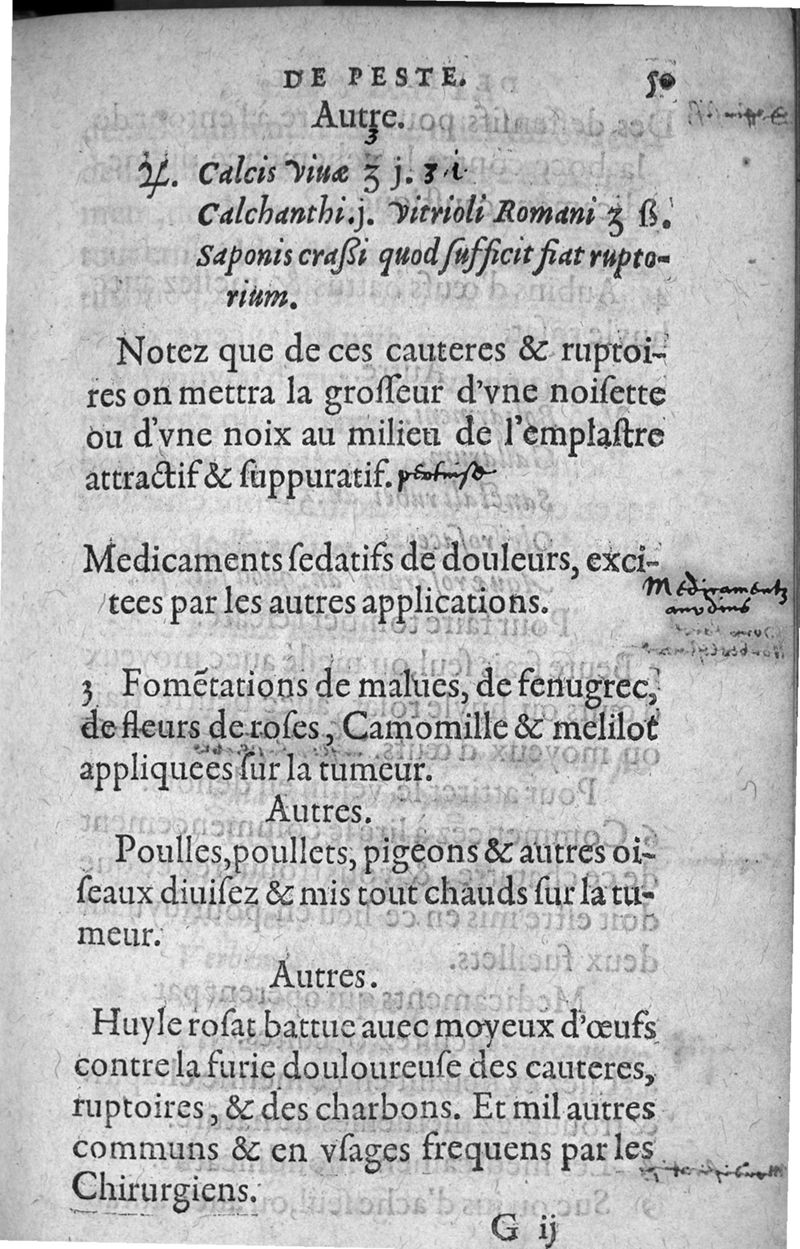 DE PESTE. 50
Autre.
3
♃. Calcis Viuæ ℥ j. ʒ i
Calchanthi.j. Vitrioli Romani ℥ ß.
Saponis craßi quod ſufficit fiat rupto-
rium.
Notez que de ces cauteres & ruptoi-
res on mettra la groſſeur d'vne noiſette
ou d'vne noix au milieu de l'emplaſtre
attractif & ſuppuratif.
Medicaments ſedatifs de douleurs, exci-
tees par les autres applications.
Medicamentz
anodins
3 Fomẽtations de malues, de fenugrec,
de fleurs de roſes, Camomille & melilot
appliquees ſur la tumeur.
Autres.
Poulles, poullets, pigeons & autres oi-
ſeaux diuiſez & mis tout chauds ſur la tu-
meur.
Autres.
Huyle roſat battue auec moyeux d'œufs
contre la furie douloureuſe des cauteres,
ruptoires, & des charbons. Et mil autres
communs & en vſages frequens par les
Chirurgiens.
G ij